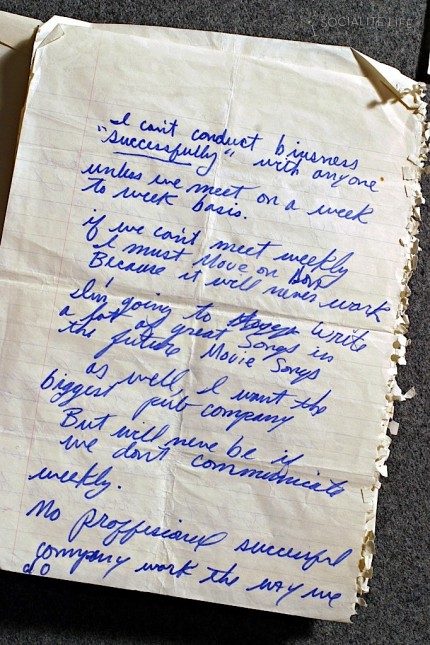 SOCIALITE LIFE
I can't conduct biusness
"successfully" with anyone
unless we meet on a week
to week basis.
if we can't meet weekly
I must Move on
Because it will never work
I'm going to write
a lot of great songs in
the future Movie Songs
as well, I want the
biggest pub company
But will neve be if
we dont communicate
weekly.
No proffisional successful
company work the way we
do